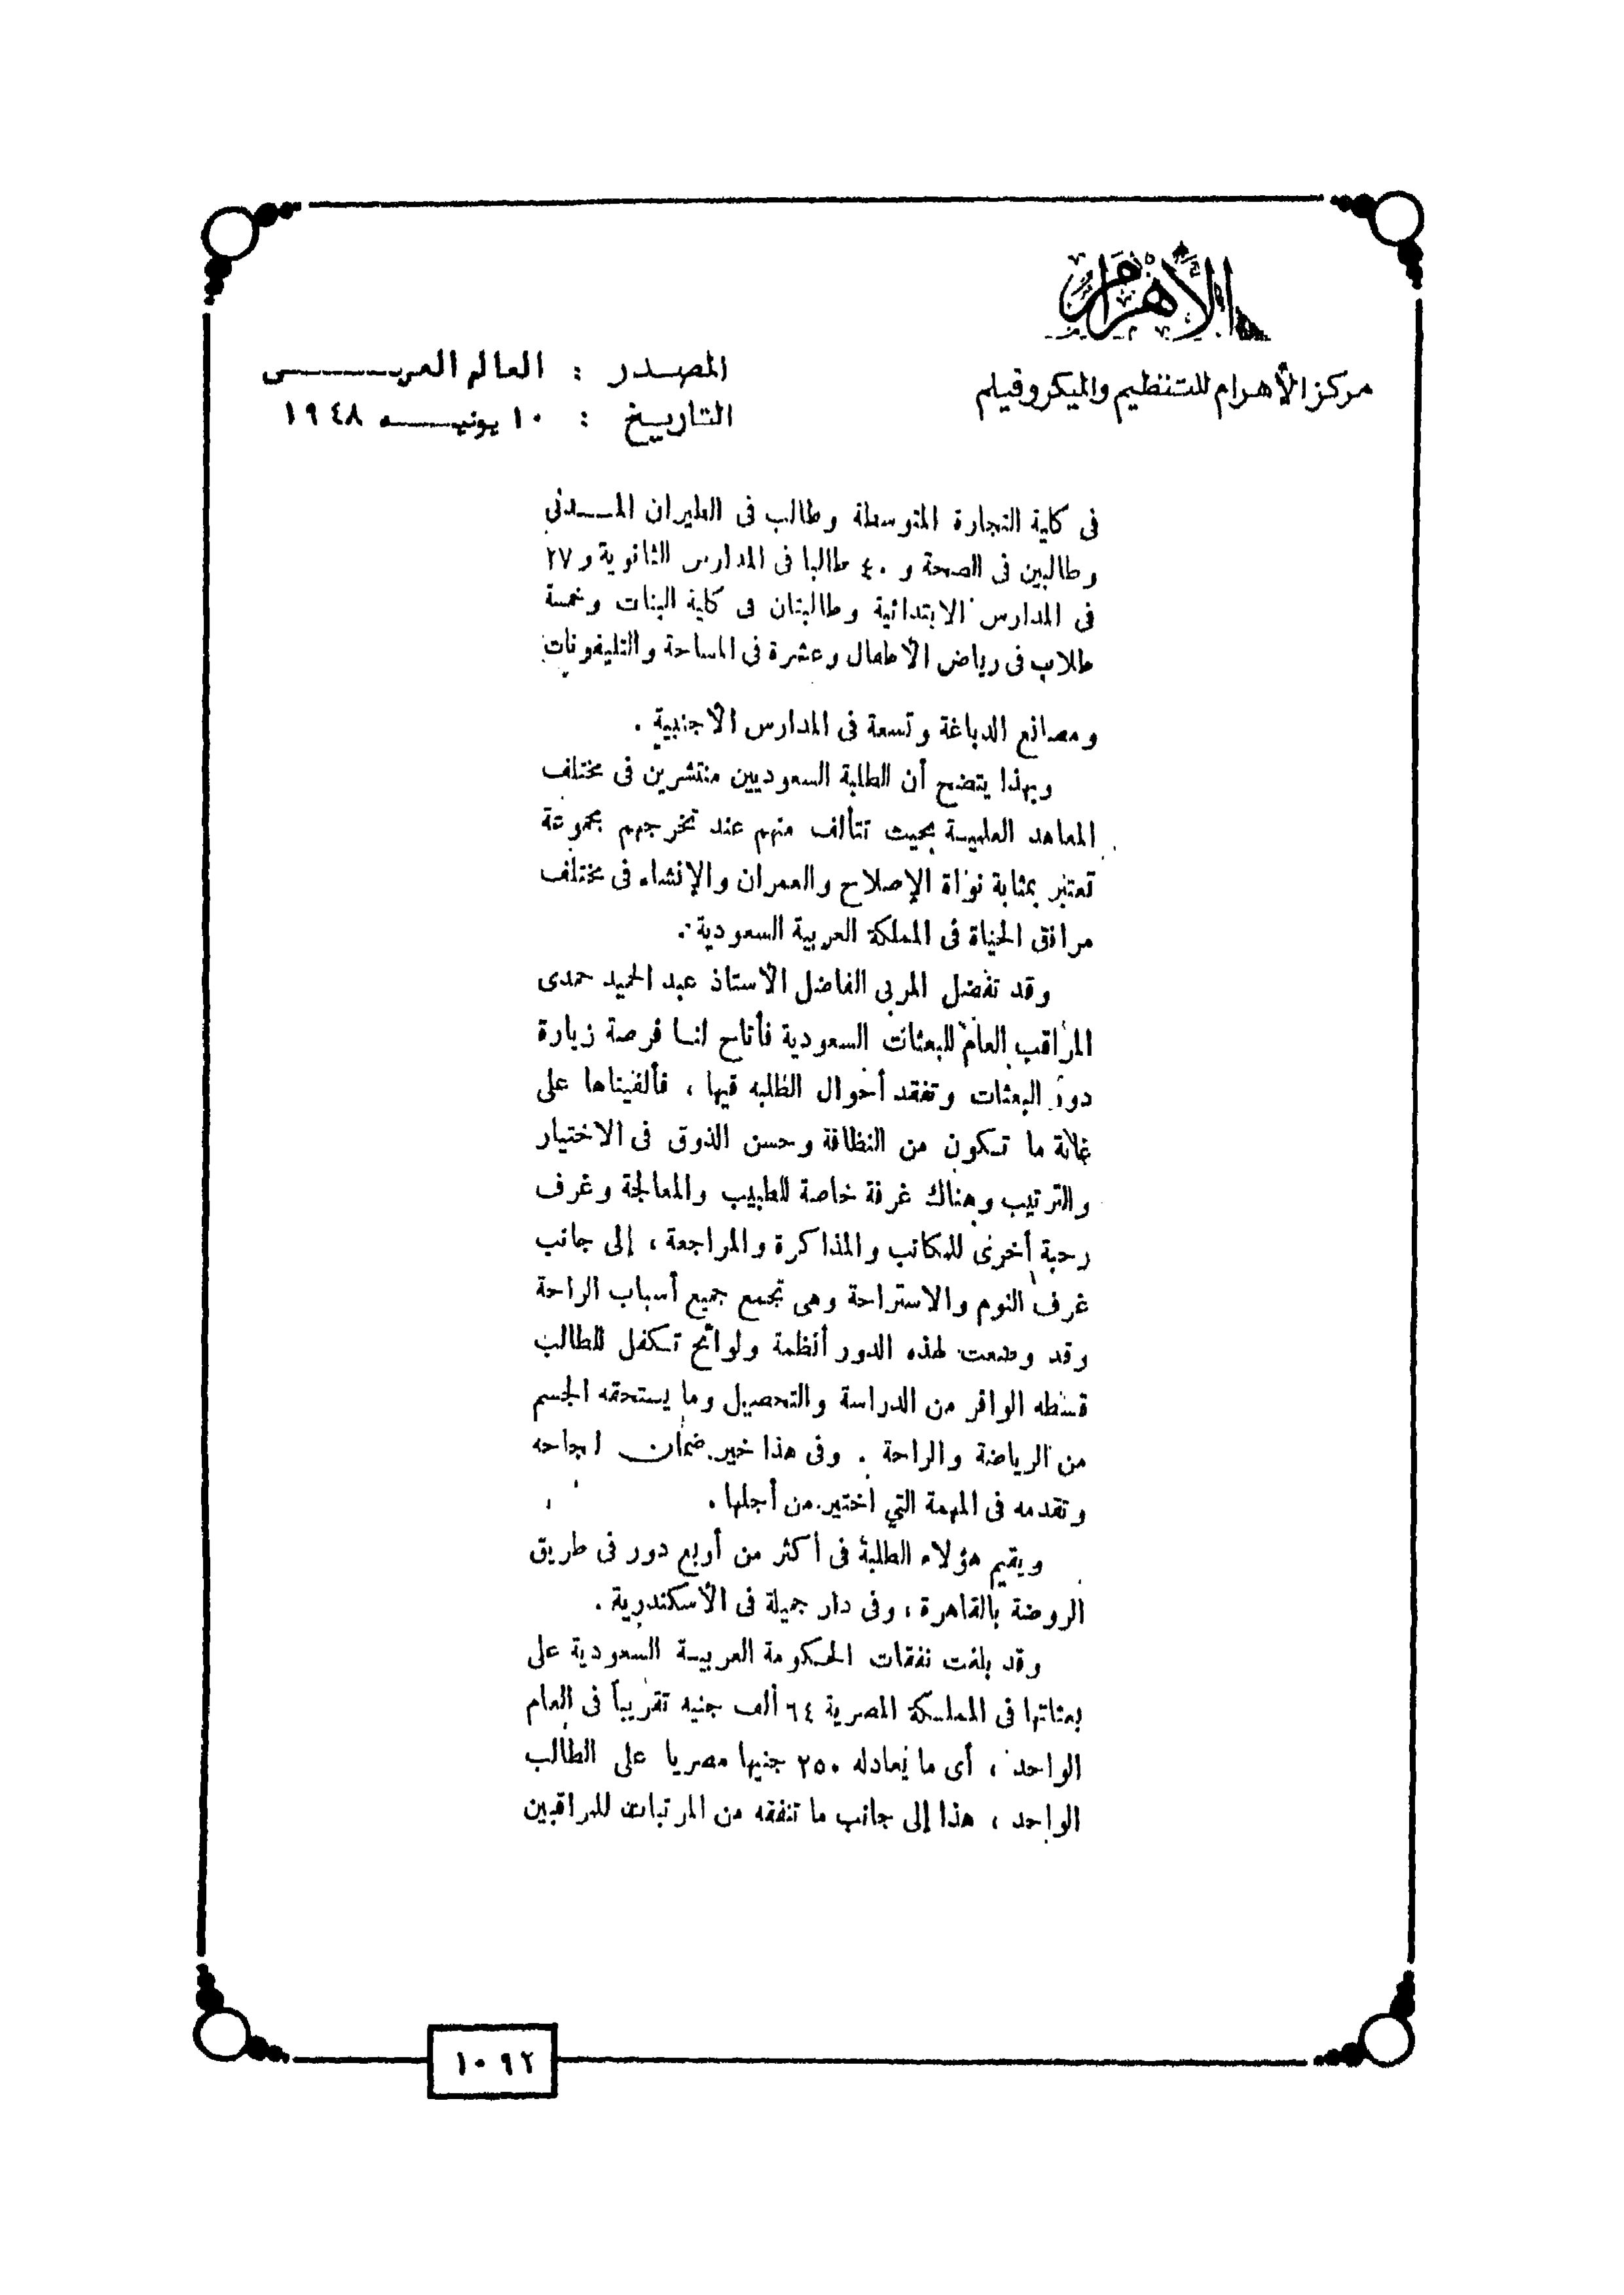 الأهرام
مركز الأهرام للتنظيم والميكروفيلم
المصدر : العالم العربى
التاريخ : ١٠ يونيه ١٩٤٨
فى كلية التجارة المتوسطة وطالب فى الطيران المدنى
وطالبين فى الصحة و ٤٠ طالبا فى المدارس الثانوية و ٢٧
فى المدارس الابتدائية وطالبتان فى كلية البنات وخمسة
طلاب فى رياض الأطفال وعشرة فى المساحة والتليفونات
ومصانع الدباغة وتسعة فى المدارس الأجنبية .
وبهذا يتضح أن الطلبة السعوديين منتشرين فى مختلف
المعاهد العلمية بحيث تتألف منهم عند تخرجهم مجموعة
تعتبر بمثابة نواة الإصلاح والعمران والإنشاء فى مختلف
مرافق الحياة فى المملكة العربية السعودية .
وقد تفضل المربى الفاضل الأستاذ عبد الحميد حمدى
المراقب العام للبعثات السعودية فأتاح لنا فرصة زيارة
دور البعثات وتفقد أحوال الطلبه فيها ، فألفيناها على
غاية ما تكون من النظافة وحسن الذوق فى الاختيار
والترتيب وهناك غرفة خاصة للطبيب والمعالجة وغرف
رحبة أخرى للمكاتب والمذاكرة والمراجعة ، إلى جانب
غرف النوم والاستراحة وهى تجمع جميع أسباب الراحة
وقد وضعت لهذه الدور أنظمة ولوائح تكفل للطالب
قسطه الوافر من الدراسة والتحصيل وما يستحقه الجسم
من الرياضة والراحة . وفى هذا خير ضمان لنجاحه
وتقدمه فى المهمة التي اختير من أجلها .
ويقيم هؤلاء الطلبة فى أكثر من أربع دور فى طريق
الروضة بالقاهرة ، وفى دار جميلة فى الأسكندرية .
وقد بلغت نفقات الحكومة العربية السعودية على
بعثاتها فى المملكة المصرية ٦٤ ألف جنيه تقريباً فى العام
الواحد ، أى ما يعادله ٢٥٠ جنيها مصريا على الطالب
الواحد ، هذا إلى جانب ما تنفقه من المرتبات للمراقبين
١٠٩٢